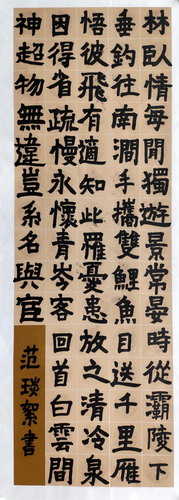 林臥情每閒獨遊景常晏時從灞陵下
垂釣往南澗手攜雙鯉魚目送千里雁
悟彼飛有適知此罹憂患放之清冷泉
因得省疏慢永懷青岑客回首白雲間
神超物無違豈系名與宦
范琰絮書